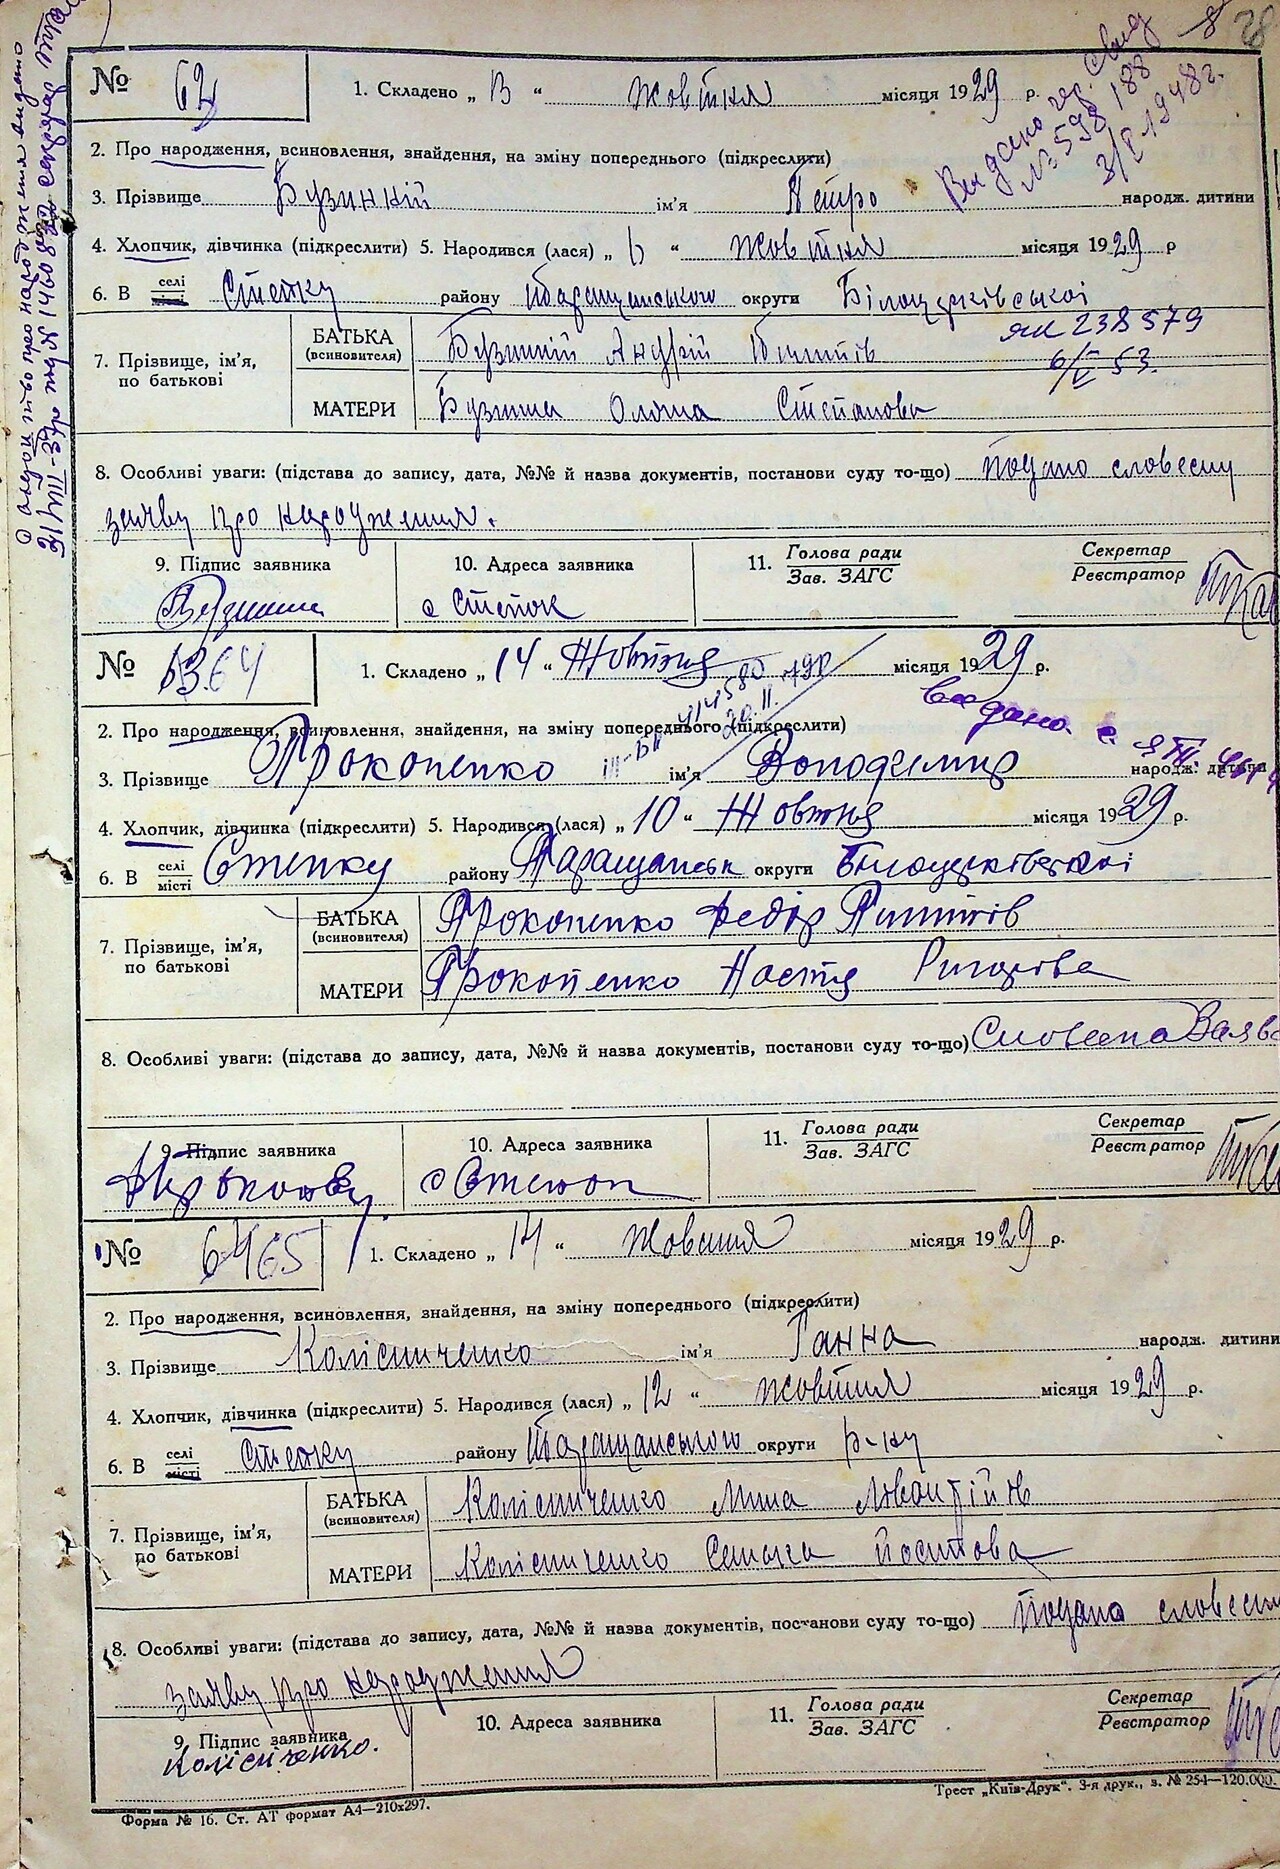 О свідоцтво про народження видано
31/VIII-39р під № 146082 секретар
28
Видано гер. свид
№ 598188
3/І 1948г.
№ 62
1. Складено „ 13 “ жовтня місяця 1929 р.
2. Про народження, всиновлення, знайдення, на зміну попереднього (підкреслити)
3. Прізвище Бузинкій ім'я Петро народж. дитини
4. Хлопчик, дівчинка (підкреслити) 5. Народився (лася) „ 6 “ жовтня місяця 1929 р
6. В селі місті Степку району Таращанського округи Білоцерківської
7. Прізвище, ім'я, по батькові
БАТЬКА (всиновителя) Бузинкій Андрій
яш 238579
6/V 53.
МАТЕРИ Оляна Степанова
8. Особливі уваги: (підстава до запису, дата, №№ й назва документів, постанови суду то-що) подано словесну
заяву про народження.
9. Підпис заявника
10. Адреса заявника с Степок
11. Голова ради Зав. ЗАГС
Секретар Реєстратор
№ 63.64
1. Складено „ 14 “ Жовтня місяця 1929 р.
414580
20.II.
2. Про народження, всиновлення, знайдення, на зміну попереднього (підкреслити)
Видано
3. Прізвище Прокопенко ім'я Володимир народж. дитини
4. Хлопчик, дівчинка (підкреслити) 5. Народився (лася) „ 10 “ Жовтня місяця 1929 р.
6. В селі місті Степку району Таращанськ округи Білоцерківської
7. Прізвище, ім'я, по батькові
БАТЬКА (всиновителя) Прокопенко Федір Пилипів
МАТЕРИ Прокопенко Настя Григорова
8. Особливі уваги: (підстава до запису, дата, №№ й назва документів, постанови суду то-що) Словесна Заява
9. Підпис заявника
10. Адреса заявника с Степок
11. Голова ради Зав. ЗАГС
Секретар Реєстратор
№ 6465
1. Складено „ 14 “ жовтня місяця 1929 р.
2. Про народження, всиновлення, знайдення, на зміну попереднього (підкреслити)
3. Прізвище Колісниченко ім'я Ганна народж. дитини
4. Хлопчик, дівчинка (підкреслити) 5. Народився (лася) „ 12 “ жовтня місяця 1929 р.
6. В селі місті Степку району Таращанського округи р-ну
7. Прізвище, ім'я, по батькові
БАТЬКА (всиновителя) Колісниченко
МАТЕРИ Колісниченко Йосипова
8. Особливі уваги: (підстава до запису, дата, №№ й назва документів, постанови суду то-що) подано словесну
заяву про народження
9. Підпис заявника Колісніченко.
10. Адреса заявника
11. Голова ради Зав. ЗАГС
Секретар Реєстратор
Форма № 16. Ст. АТ формат А4—210х297.
Трест „Київ-Друк“. 3-я друк., з. № 254—120.000.